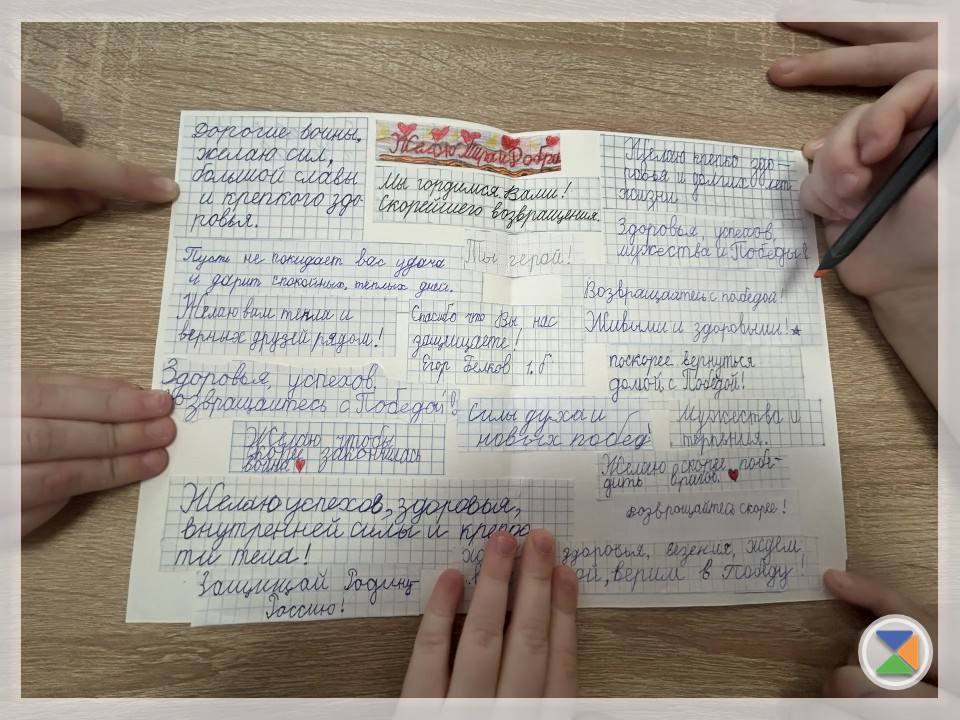 Дорогие воины,
желаю сил,
большой славы
и крепкого здо-
ровья.
Желаю Мира и Добра
Мы гордимся Вами!
Скорейшего возвращения.
Желаю крепко здо-
ровья и долгих лет
жизни
Здоровья, успехов,
мужества и Победы!
Ты герой!
Пусть не покидает вас удача
и дарит спокойных, тёплых дней.
Возвращайтесь с победой!
Живыми и здоровыми!
Желаю вам тепла и
верных друзей рядом!
Спасибо что Вы нас
защищаете!
Егор Белков 1.б
поскорее вернуться
домой с Победой!
Здоровья, успехов,
возвращайтесь с Победой!
Силы духа и
новых побед!
Мужества и
терпения.
Желаю чтобы
скорее закончилась
война
Желаю скорее побе-
дить врагов.
возвращайтесь скорее!
Желаю успехов, здоровья,
внутренней силы и крепос
ти тела!
здоровья, везения, ждём
верим в Победу!
Защищай Родину
Россию!